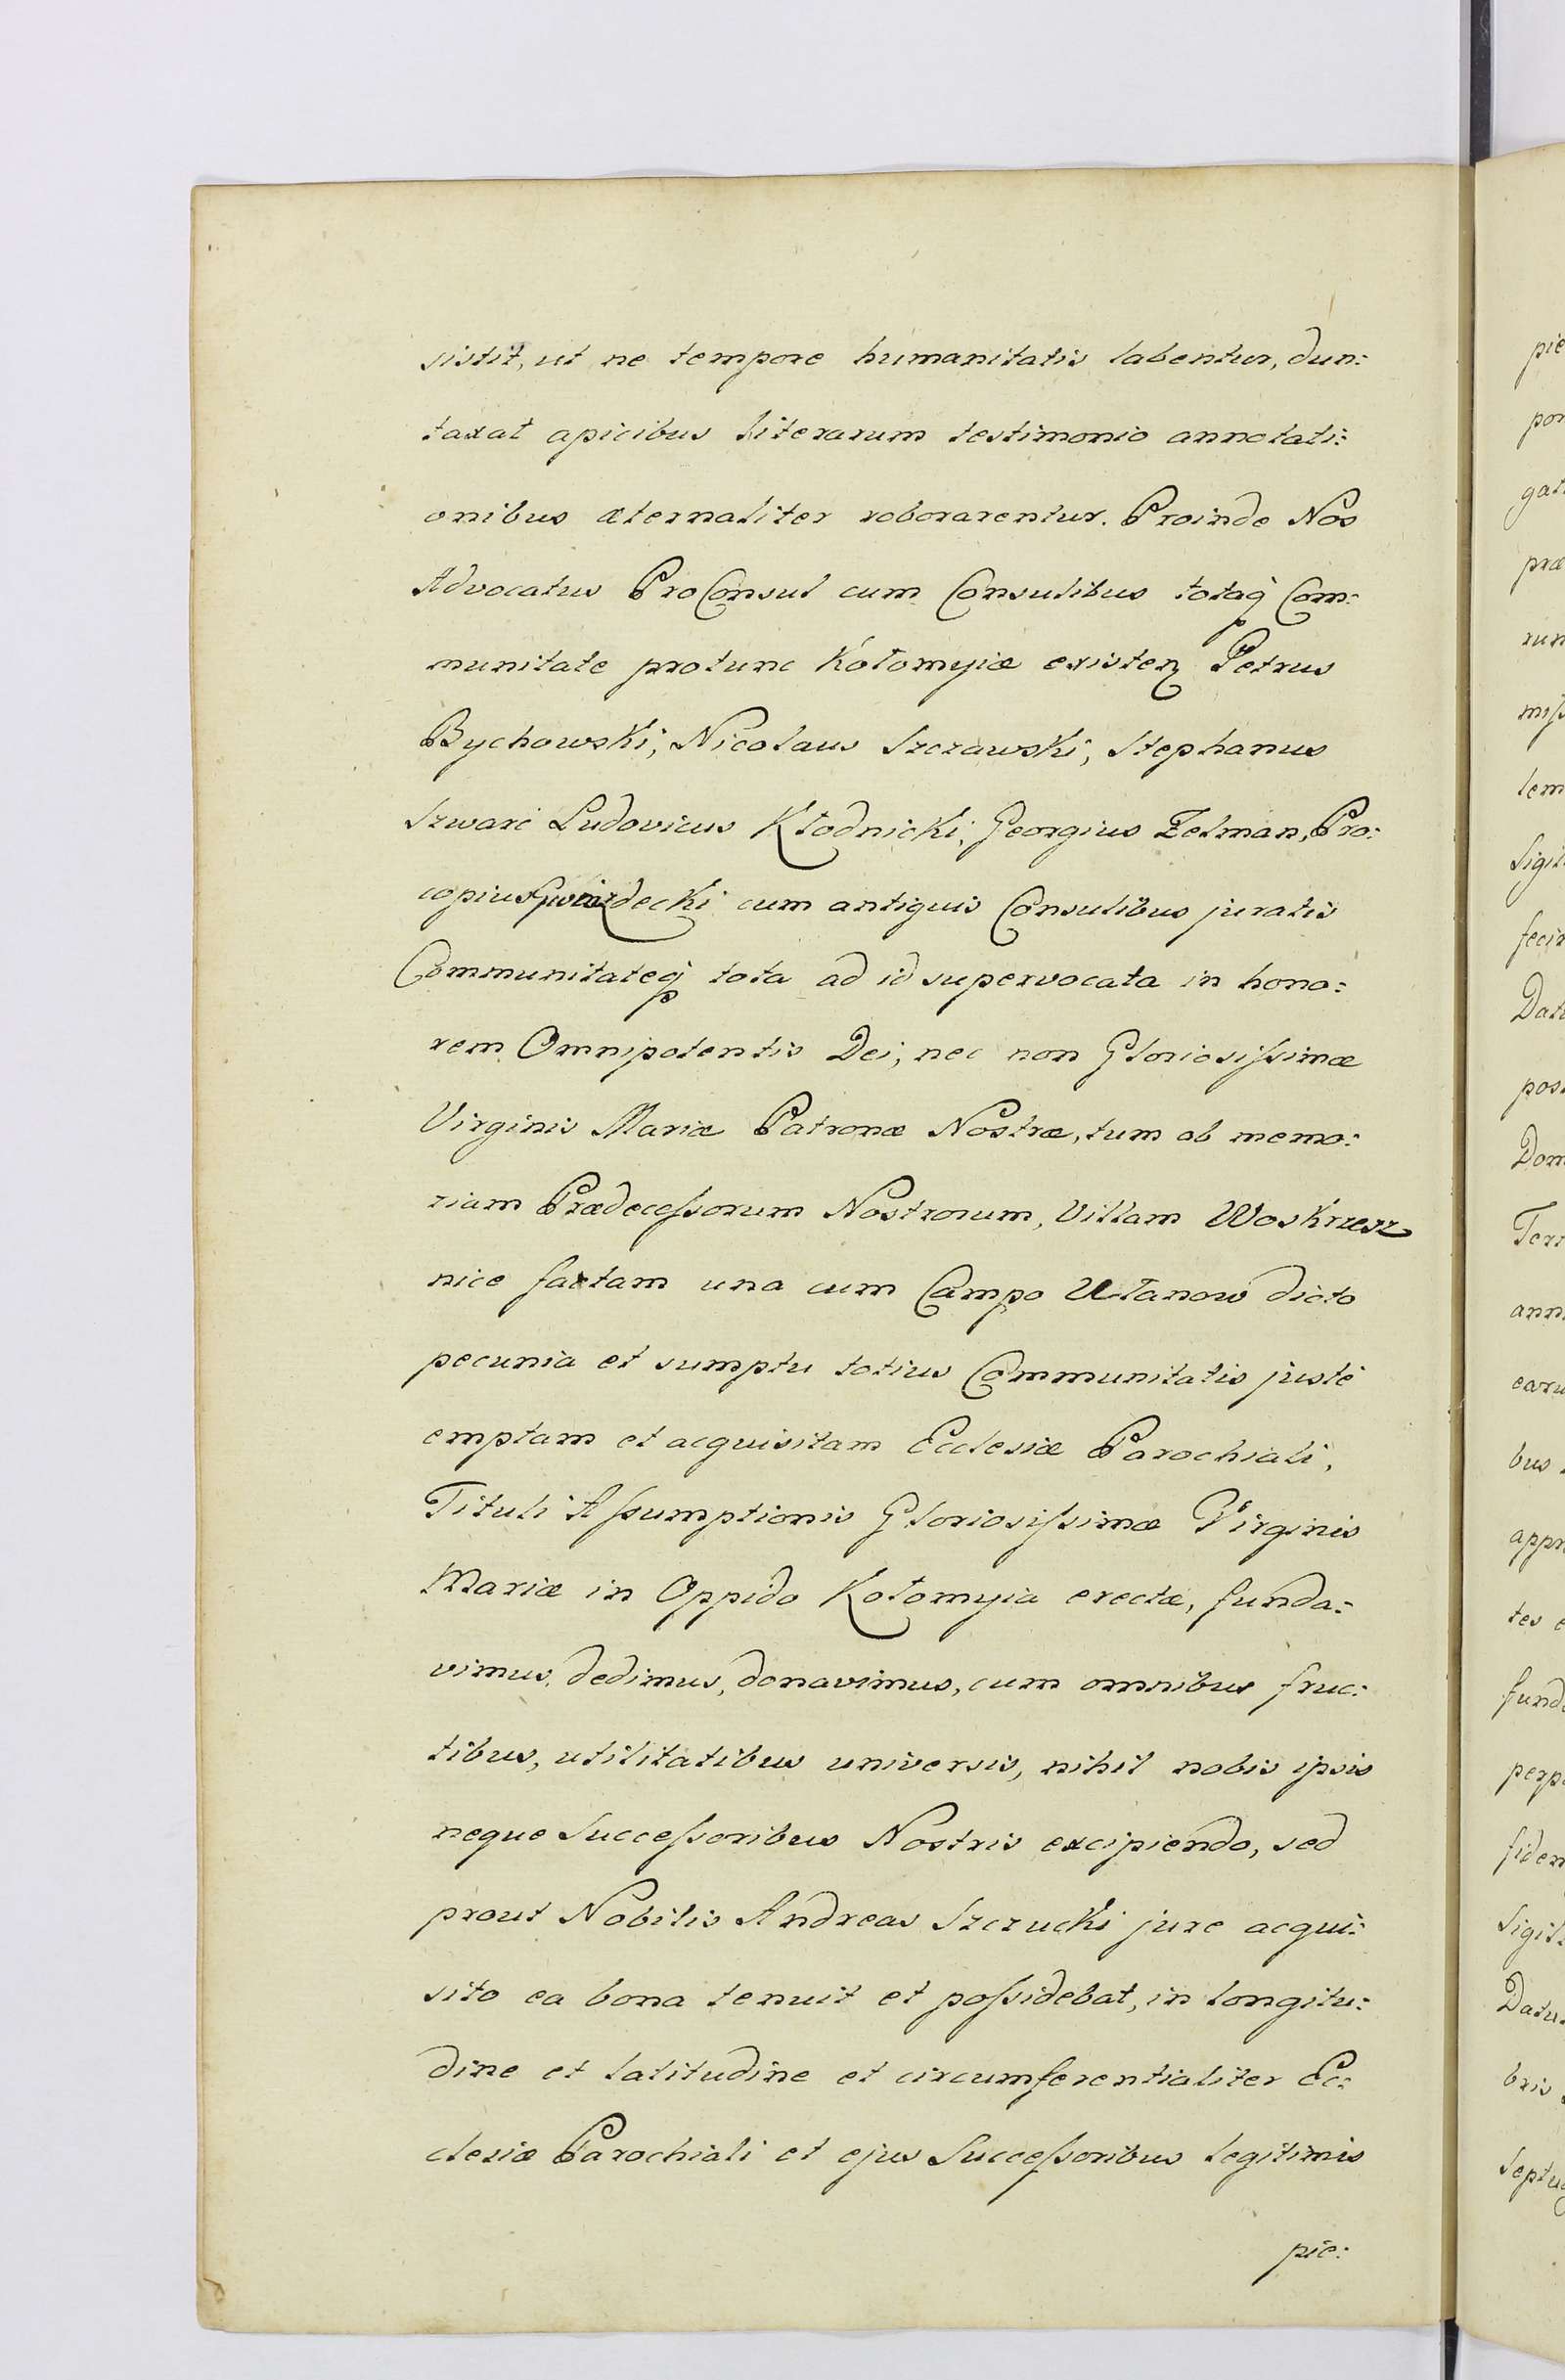 sistit, ut ne tempore humanitatis labentur, dun:
taxat apicibus literarum testimonio annotati:
onibus æternaliter roborarentur. Proinde Nos
Advocatus ProConsul cum Consulibus totaq Com:
munitate protunc Kołomyiæ existen Petrus
Bychowski, Nicolaus Szczawski, Stephanus
Szwarc Ludovicus Kłodnicki, Georgius Zelman, Pro:
copius Gwiazdecki cum antiquis Consulibus juratis
Communitateq tota ad id supervocata in hono:
rem Omnipotentis Dei, nec non Gloriosissimæ
Virginis Mariæ Patronæ Nostræ, tum ob memo:
riam Prædecessorum Nostrorum, Villam Woskrzesz
nice factam una cum Campo Ułanow dicto
pecunia et sumptu totius Communitatis justè
emptam et acquisitam Ecclesiæ Parochiali,
Tituli Assumptionis Gloriosissimæ Virginis
Mariæ in Oppido Kołomyia erectæ, funda:
vimus, dedimus, donavimus, cum omnibus fruc:
tibus, utilitatibus universis, nihil nobis ipsis
neque Successoribus Nostris excipiendo, sed
prout Nobilis Andreas Szczucki jure acqui:
sito ea bona tenuit et possidebat, in longitu:
dine et latitudine et circumferentialiter Ec:
clesiæ Parochiali et ejus Successoribus legitimis
pie: